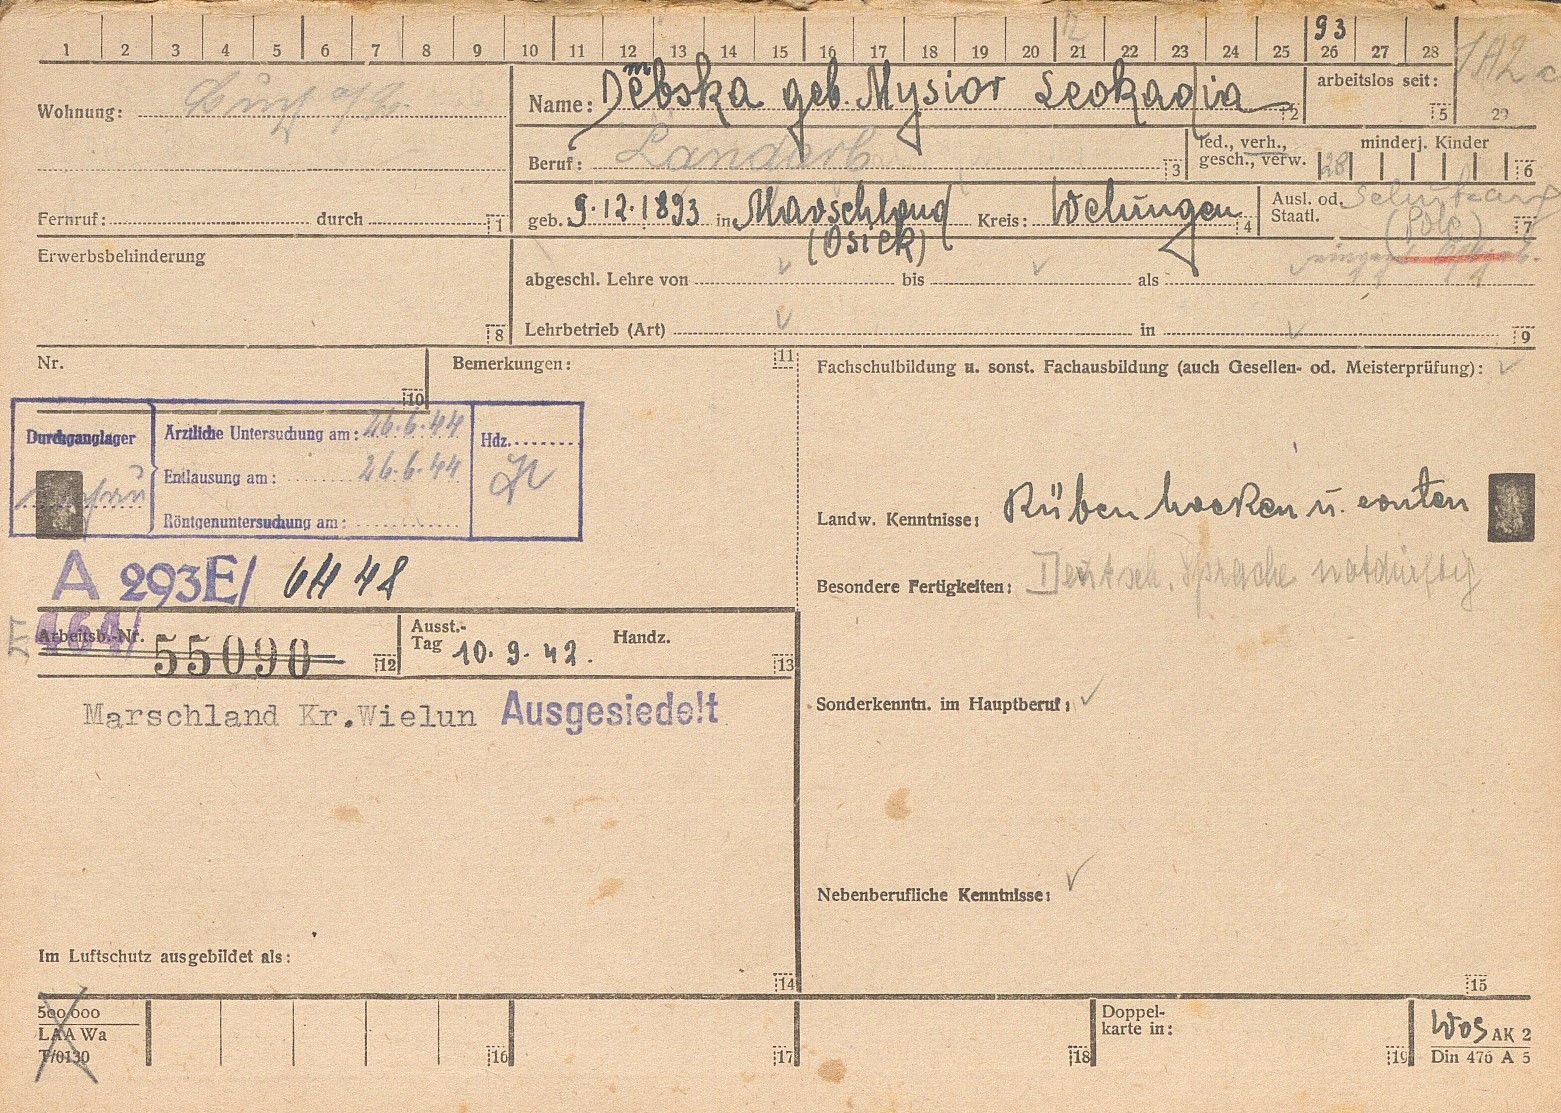 93
1 2 3 4 5 6 7 8 9 10 11 12 13 14 15 16 17 18 19 20 21 22 23 24 25 26 27 28
29
Wohnung:
Name: Dębska geb. Mysior Leokadja 2
arbeitslos seit: 5
Beruf: Landarb. 3
led., verh.,
gesch., verw.
minderj. Kinder
28 6
Fernruf: durch 1
geb. 9.12.1893 in Marschland Kreis: Welungen 4
(Osiek)
Ausl. od.
Staatl. 7
(Pole)
Erwerbsbehinderung
8
abgeschl. Lehre von bis als
Lehrbetrieb (Art) in 9
Nr. 10
Bemerkungen: 11
Fachschulbildung u. sonst. Fachausbildung (auch Gesellen- od. Meisterprüfung):
Durchganglager
Ärztliche Untersuchung am: 26.6.44
Hdz.
Entlausung am: 26.6.44
Röntgenuntersuchung am:
Landw. Kenntnisse: Rüben hacken u. ernten
A 293E/ 6448
Besondere Fertigkeiten: Deutsch. Sprache notdürftig
464/
Arbeitsb.-Nr. 55090 12
Ausst.-
Tag 10.9.42. Handz. 13
Marschland Kr.Wielun Ausgesiedelt
Sonderkenntn. im Hauptberuf:
Nebenberufliche Kenntnisse:
Im Luftschutz ausgebildet als:
14
15
500 000
LAA Wa
T/0130
16
17
18
Doppel-
karte in:
19
AK 2
Din 476 A 5